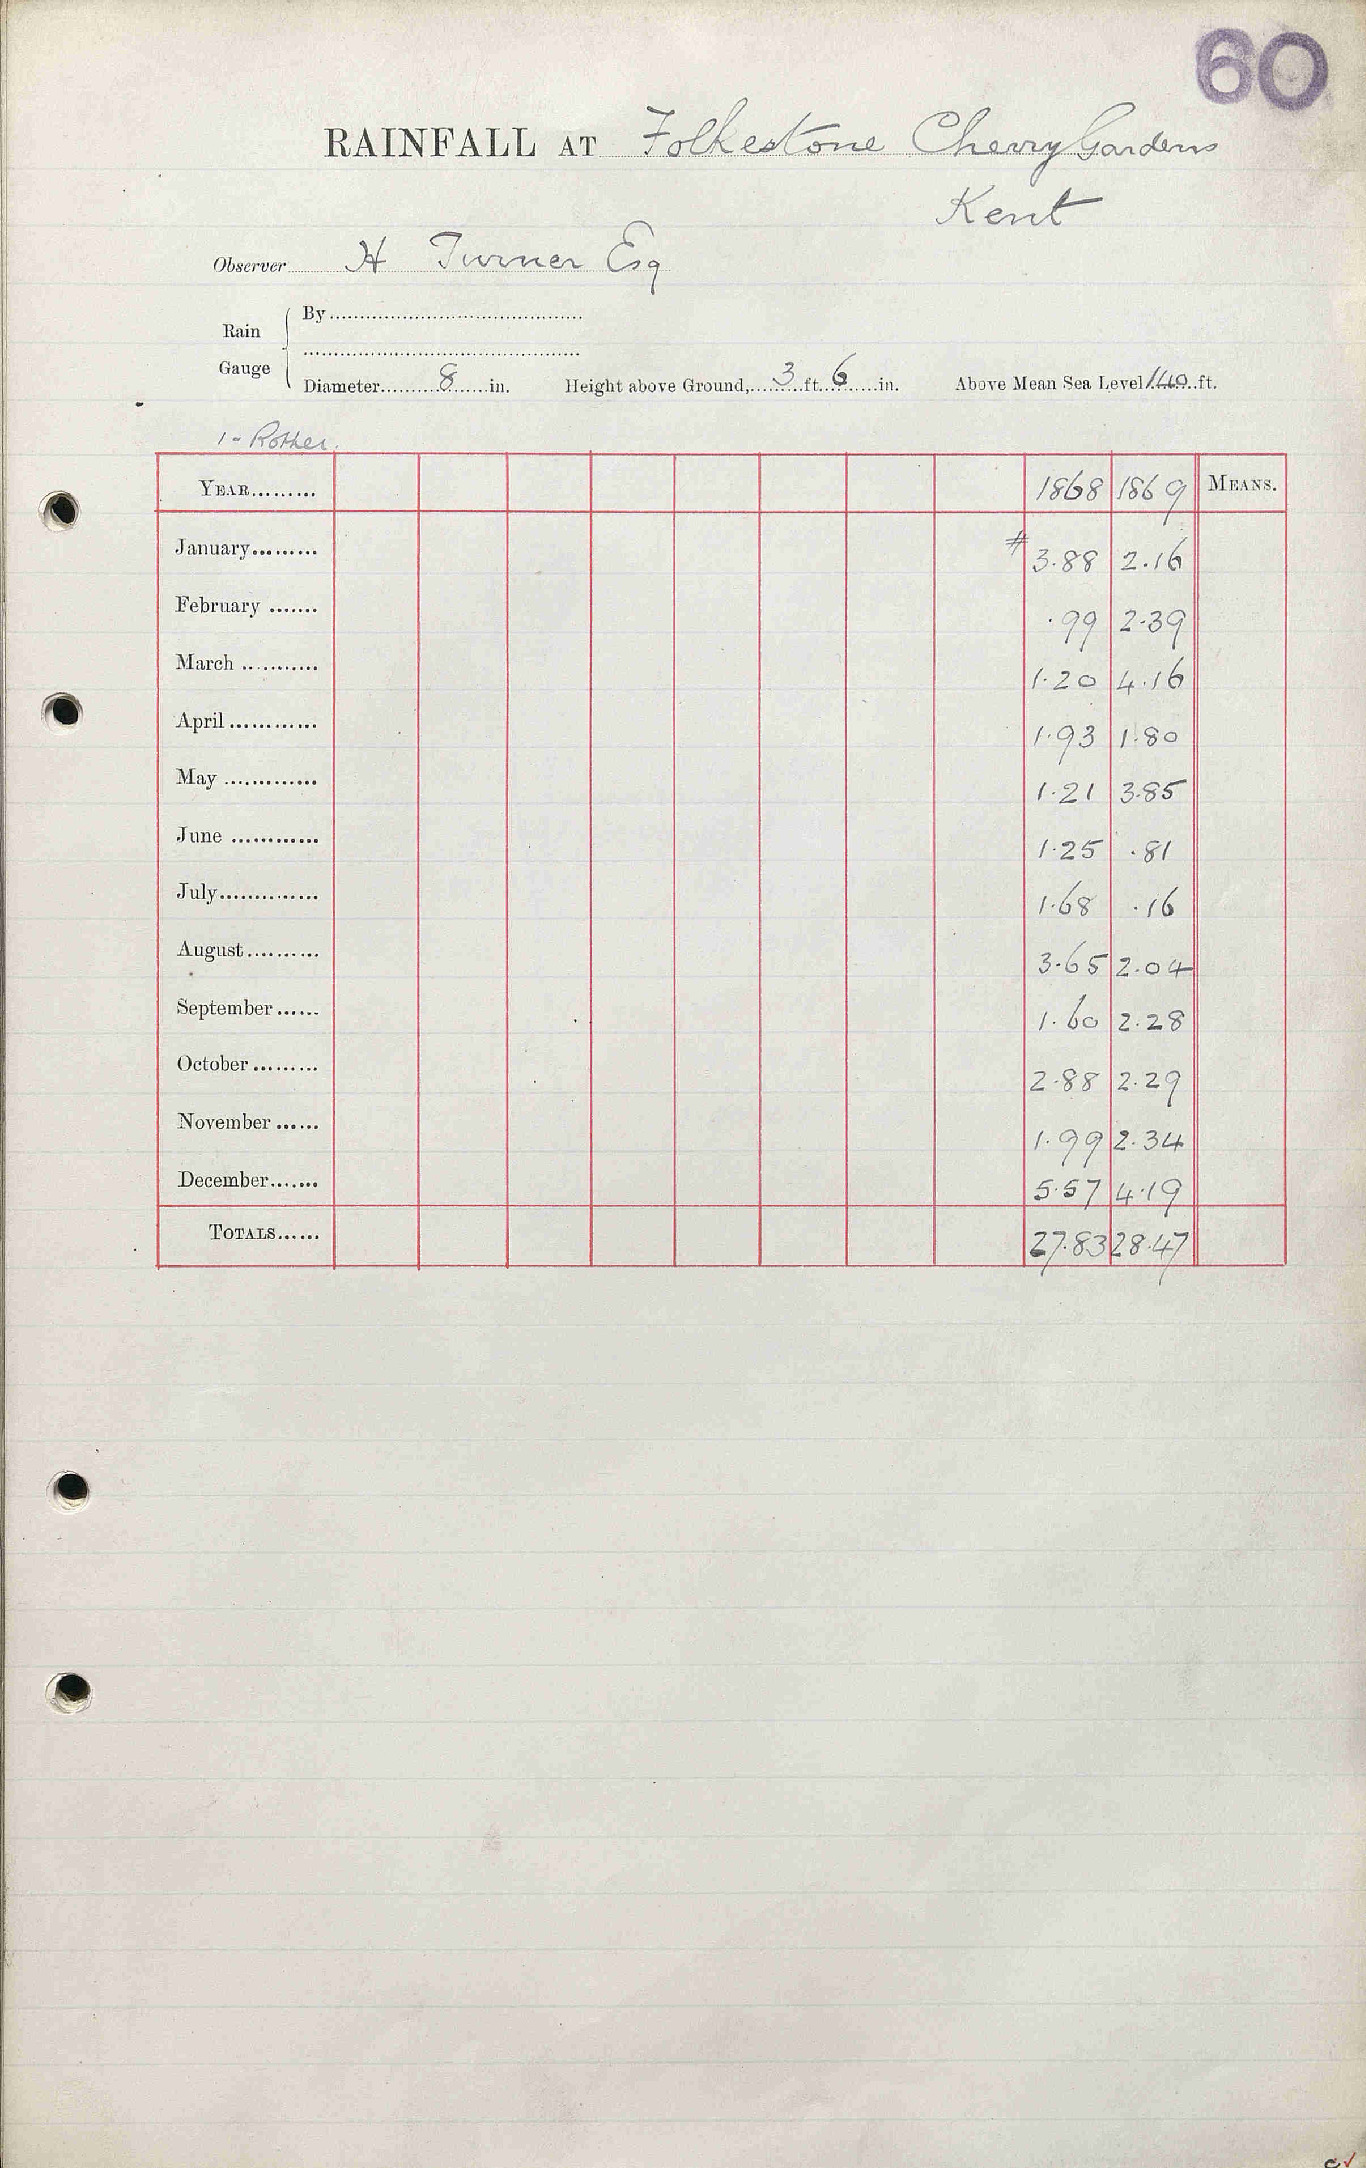 60
RAINFALL AT Folkestone Cherry Gardens
Kent
Observer H Turner Esq
Rain Gauge
By
Diameter 8 in. Height above Ground, 3 ft. 6 in. Above Mean Sea Level 140 ft.
1 - Rother.
YEAR 1868 1869 MEANS.
January # 3.88 2.16
February .99 2.39
March 1.20 4.16
April 1.93 1.80
May 1.21 3.85
June 1.25 .81
July 1.68 .16
August 3.65 2.04
September 1.60 2.28
October 2.88 2.29
November 1.99 2.34
December 5.57 4.19
TOTALS 27.83 28.47